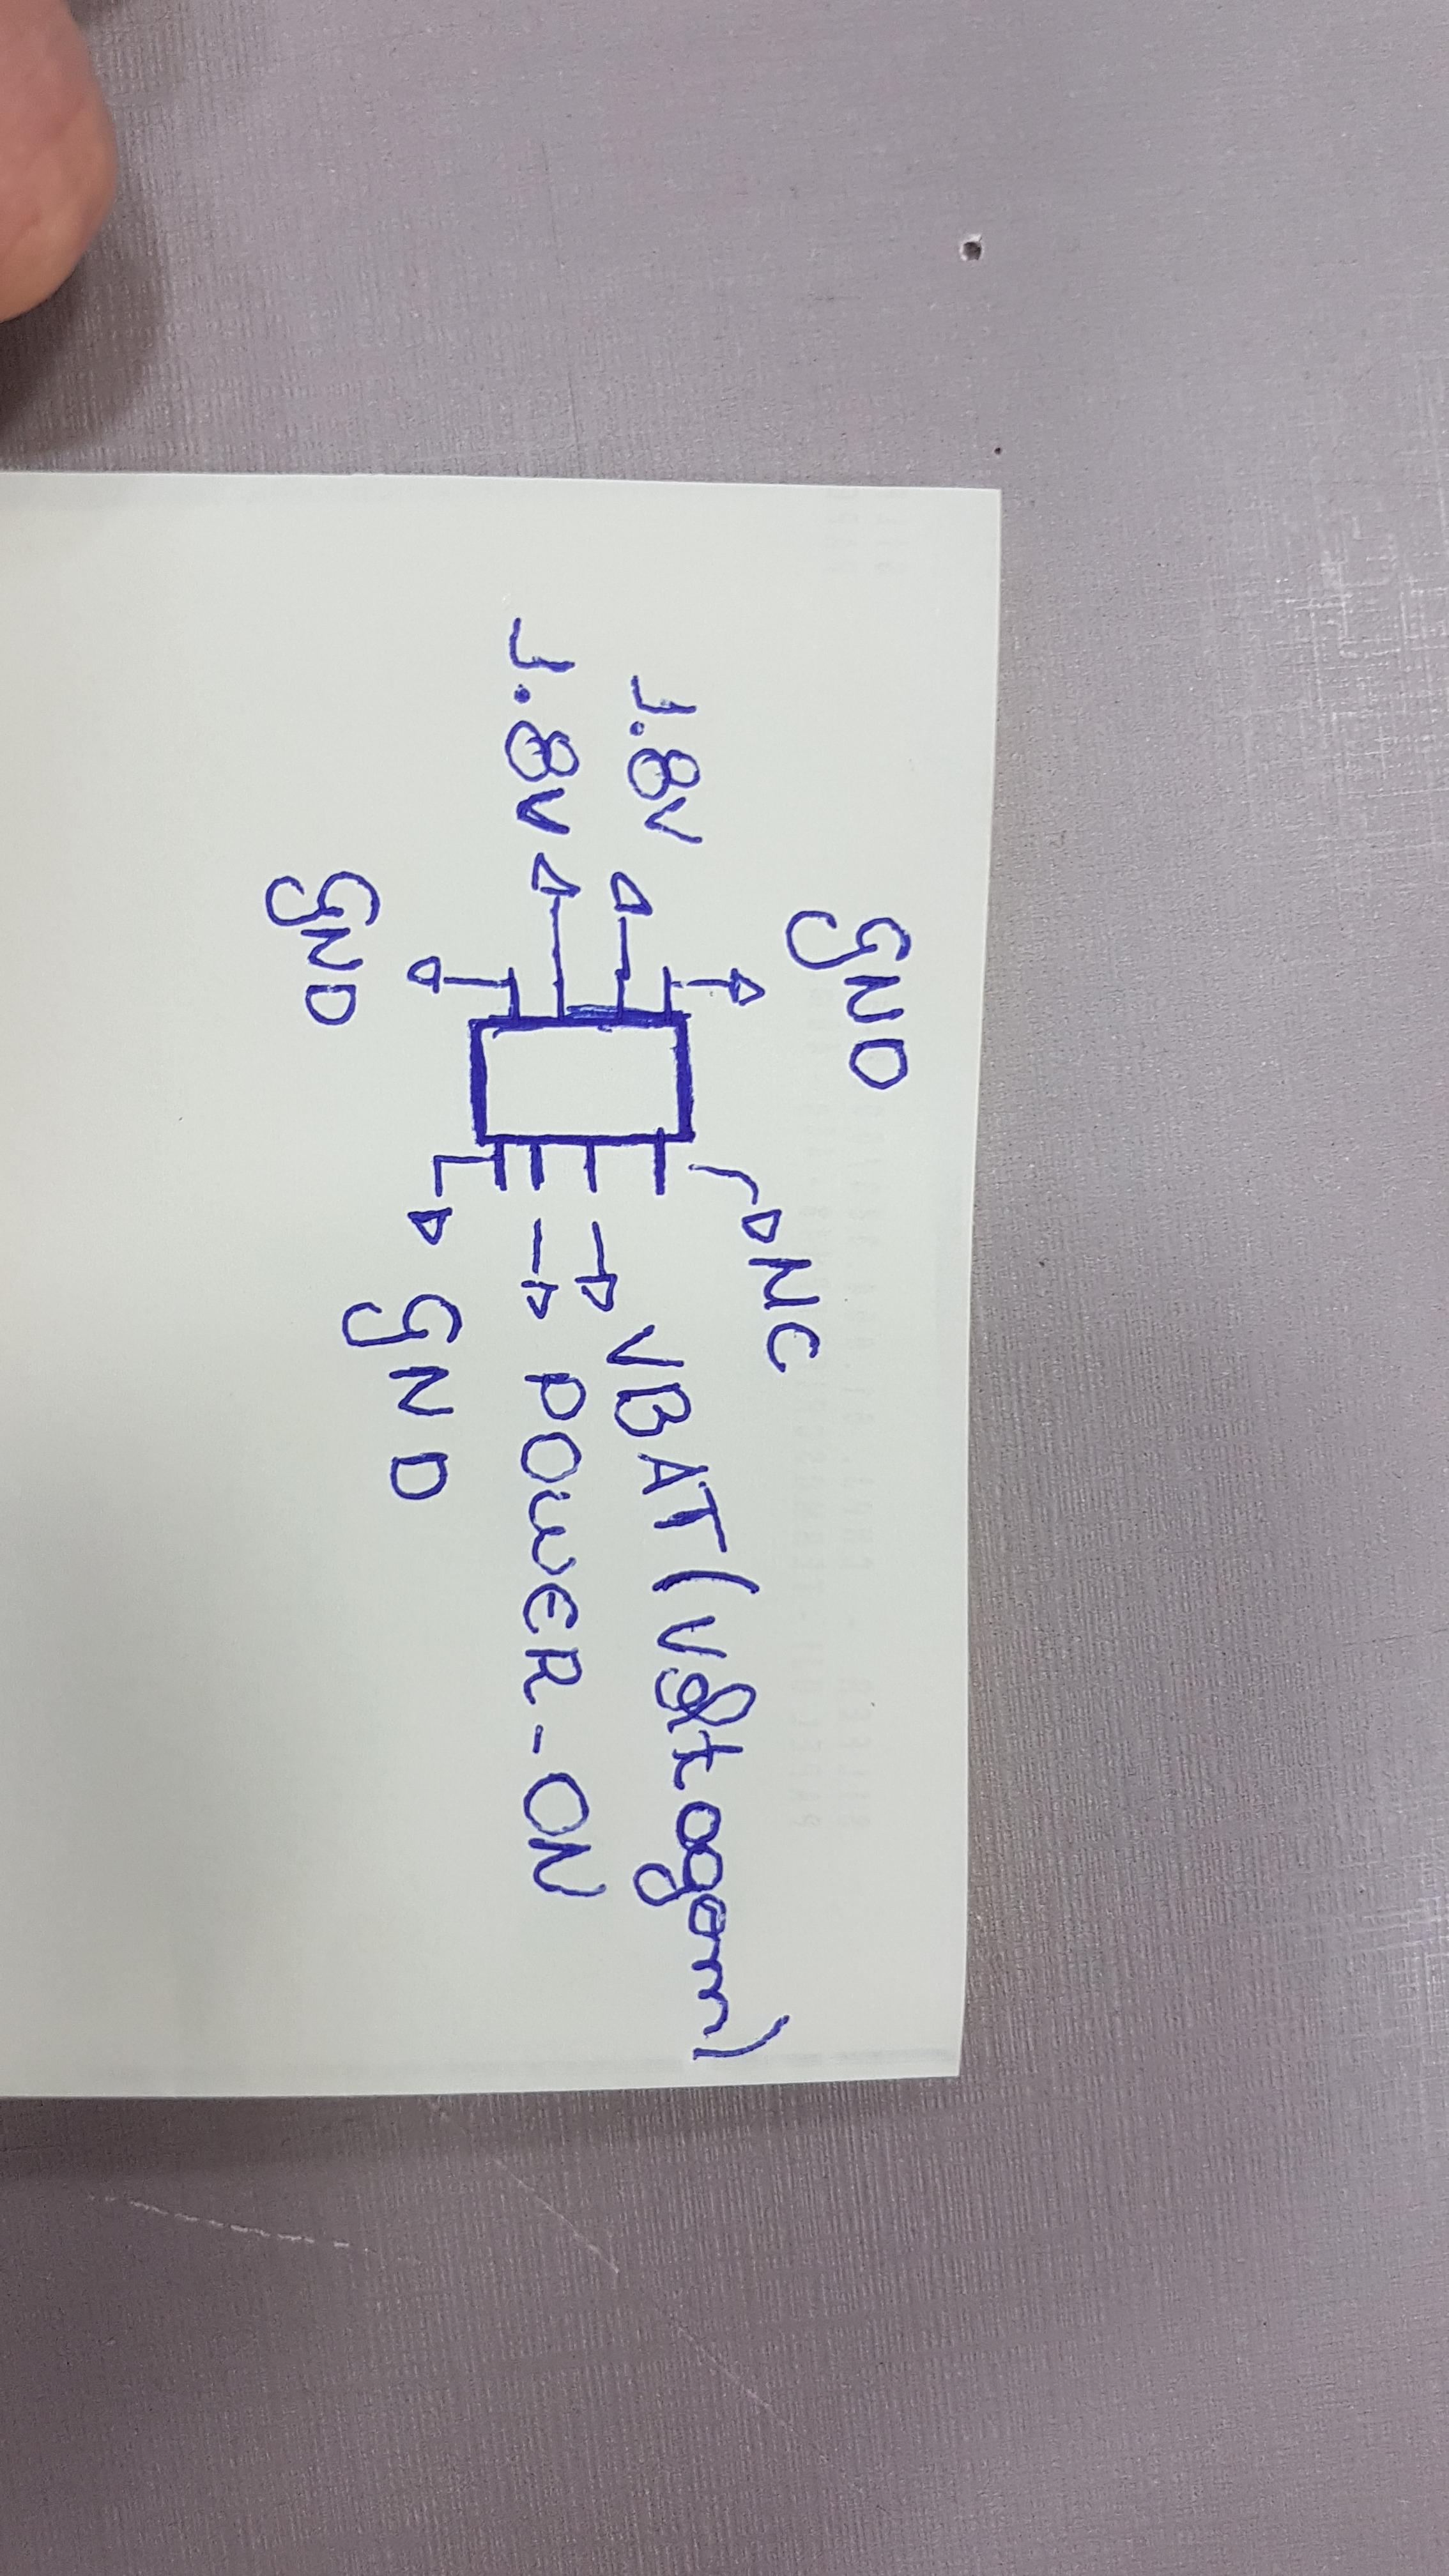 GND
NC
1.8V
VBAT (voltagem)
1.8V
POWER-ON
GND
GND